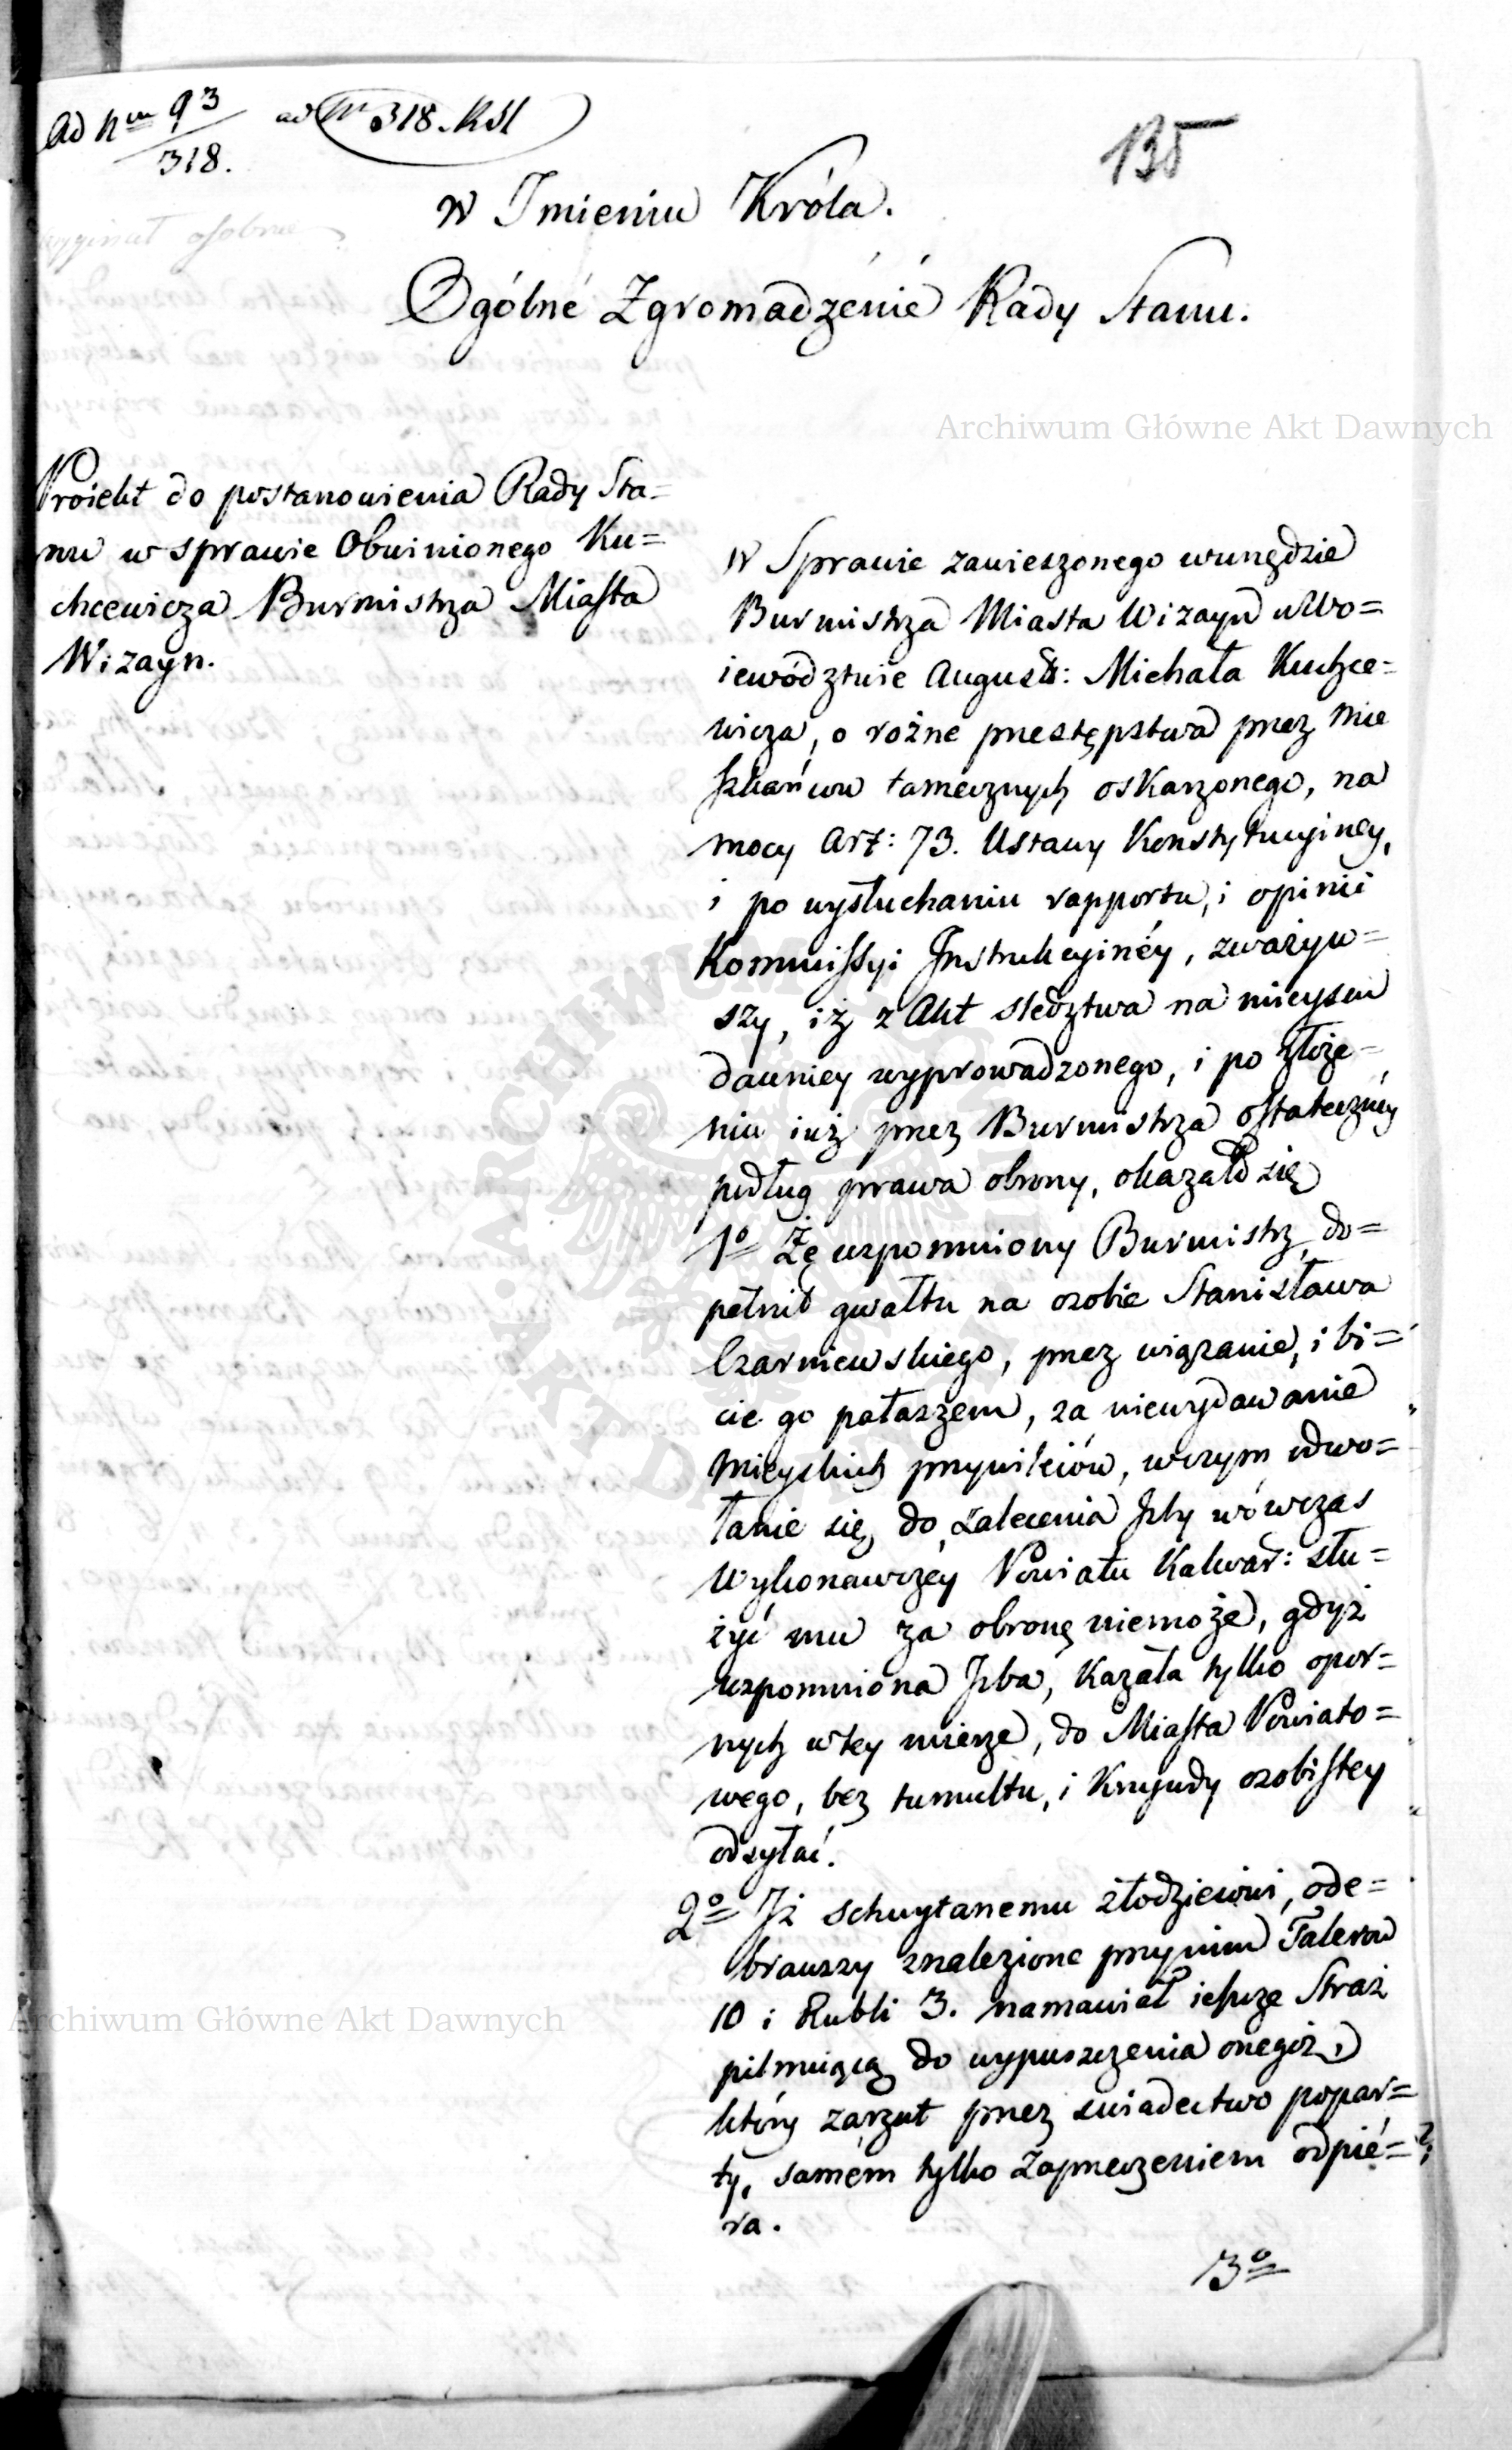 Ad Nm 93/318. ad Nr 318. KSt
135
W Imieniu Króla.
Ogólné Zgromadzénié Rady Stanu.
Archiwum Główne Akt Dawnych
Proiekt do postanowienia Rady Sta=
nu w sprawie Obwinionego Ku=
chcewicza Burmistrza Miasta
Wizayn.
W Sprawie zawieszonego w urzędzie
Burmistrza Miasta Wizayn w Wo=
iewództwie August: Michała Kuchce=
wicza, o rożne przestępstwa przez Mie
szkańców tamecznych oskarzonego, na
mocy Art: 73. Ustawy Konstytucyiney,
i po wysłuchaniu rapportu, i opinii
Kommissyi Instrukcyinéy, zważyw=
szy, iż z Akt sledztwa na mieyscu
dawniey wyprowadzonego, i po złoże=
niu iuż przez Burmistrza ostateczney
podług prawa obrony, okazało się
1o Że wspomniony Burmistrz do=
pełnił gwałtu na osobie Stanisława
Czarniewskiego, przez wiązanie, i bi=
cie go pałaszem, za niewydawanie
Mieyskich przywileiów, w czym odwo=
łanie się do zalecenia Izby wówczas
Wykonawczéy Powiatu Kalwar: słu=
żyć mu za obronę niemoże, gdyż
wspomniona Izba, kazała tylko opor=
nych w tey mierze, do Miasta Powiato=
wego, bez tumultu, i Krzywdy osobistey
odsyłać.
2o Iż schwytanemu złodziewi, ode=
brawszy znalezione przy nim Talerow
10 i Rubli 3. namawiał ieszcze Straż
pilnuiącą do wypuszczenia onegoż,
który zarzut przez swiadectwo popar=
ty, samém tylko zaprzeczeniem odpié=
ra.
3o
Archiwum Główne Akt Dawnych
ARCHIWUM GŁÓWNE
AKT DAWNYCH